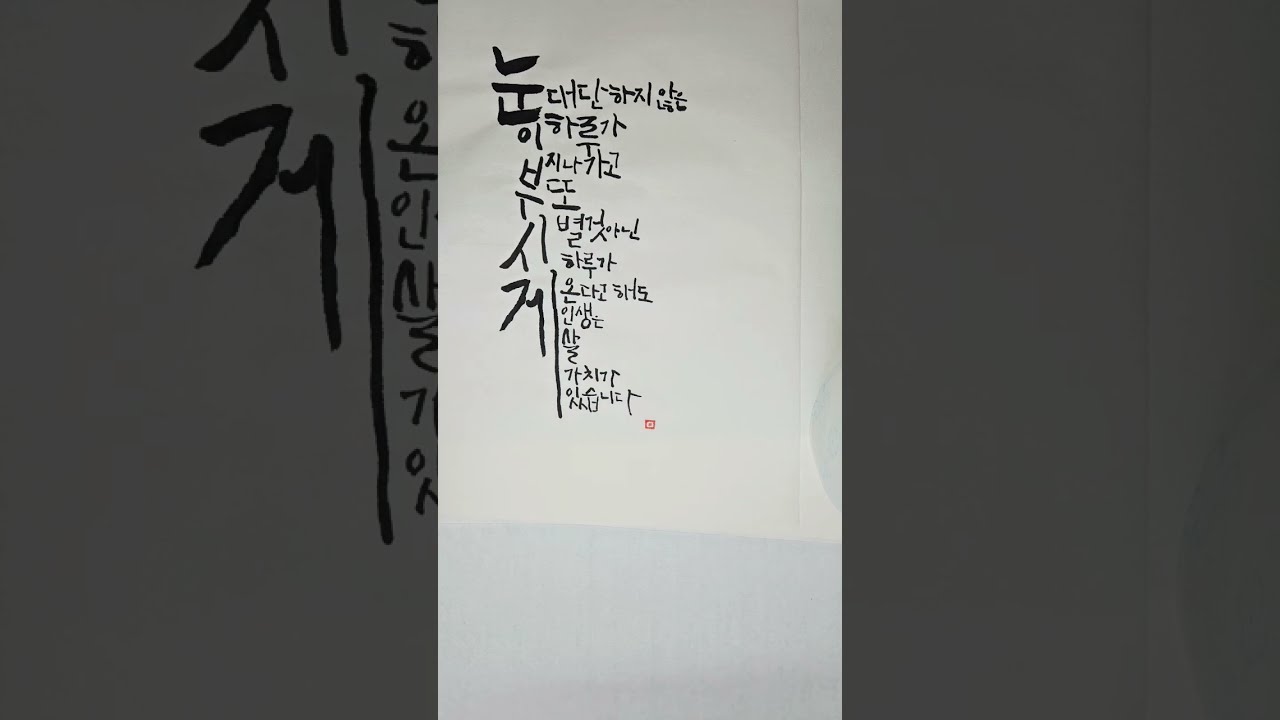 눈이부시게
대단하지 않은
하루가
지나가고
또
별것아닌
하루가
온다고 해도
인생은
살
가치가
있습니다